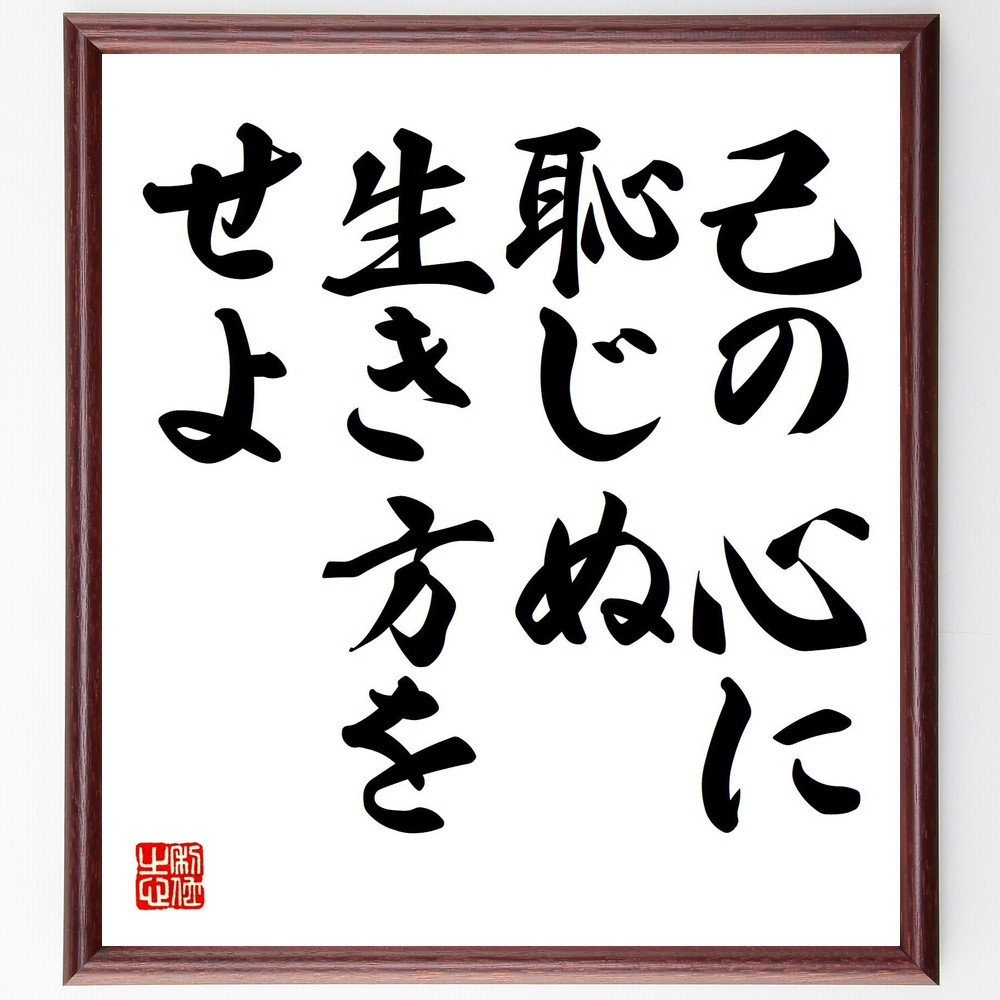 己の心に
恥じぬ
生き方を
せよ